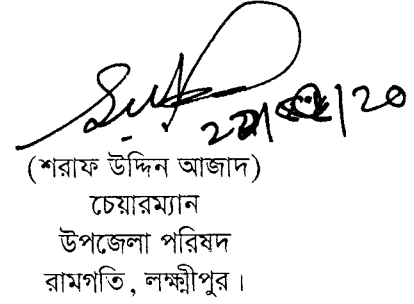 (শরাফ উদ্দিন আজাদ)
চেয়ারম্যান
উপজেলা পরিষদ
রামগতি, লক্ষ্মীপুর।